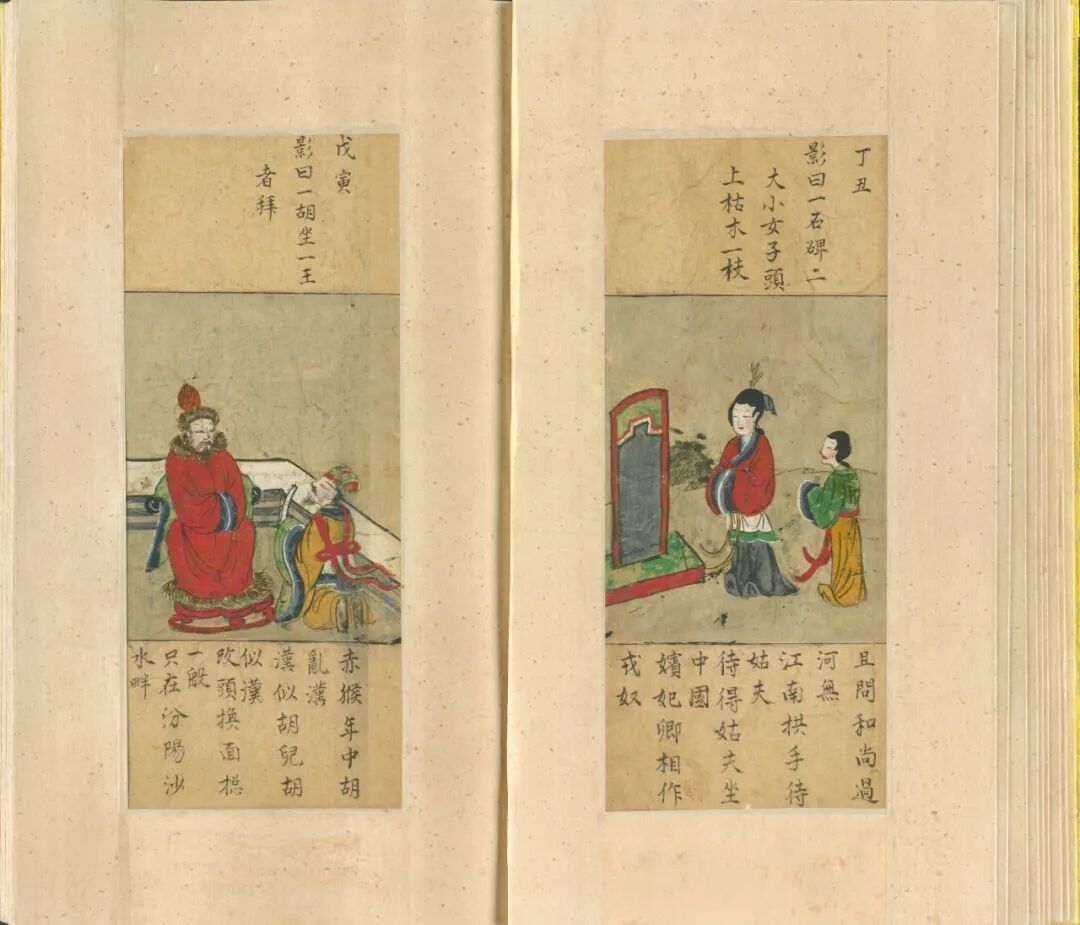 丁丑
影曰一石碑二
大小女子頭
上枯木一枝
且問和尚過
河無
江南拱手待
姑夫
待得姑夫坐
中國
嬪妃卿相作
戎奴
戊寅
影曰一胡坐一王
者拜
赤猴年中胡
亂漢
漢似胡兒胡
似漢
改頭換面總
一般
只在汾陽沙
水畔